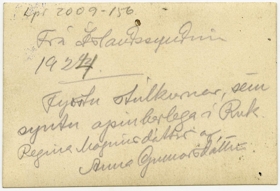 Lpr 2009-156
Frá Íslandssundinu
1924.
Fyrstu stúlkurnar, sem
syntu opinberlega í Rvk.
Regina Magnúsdóttir og
Anna Gunnarsdóttir.